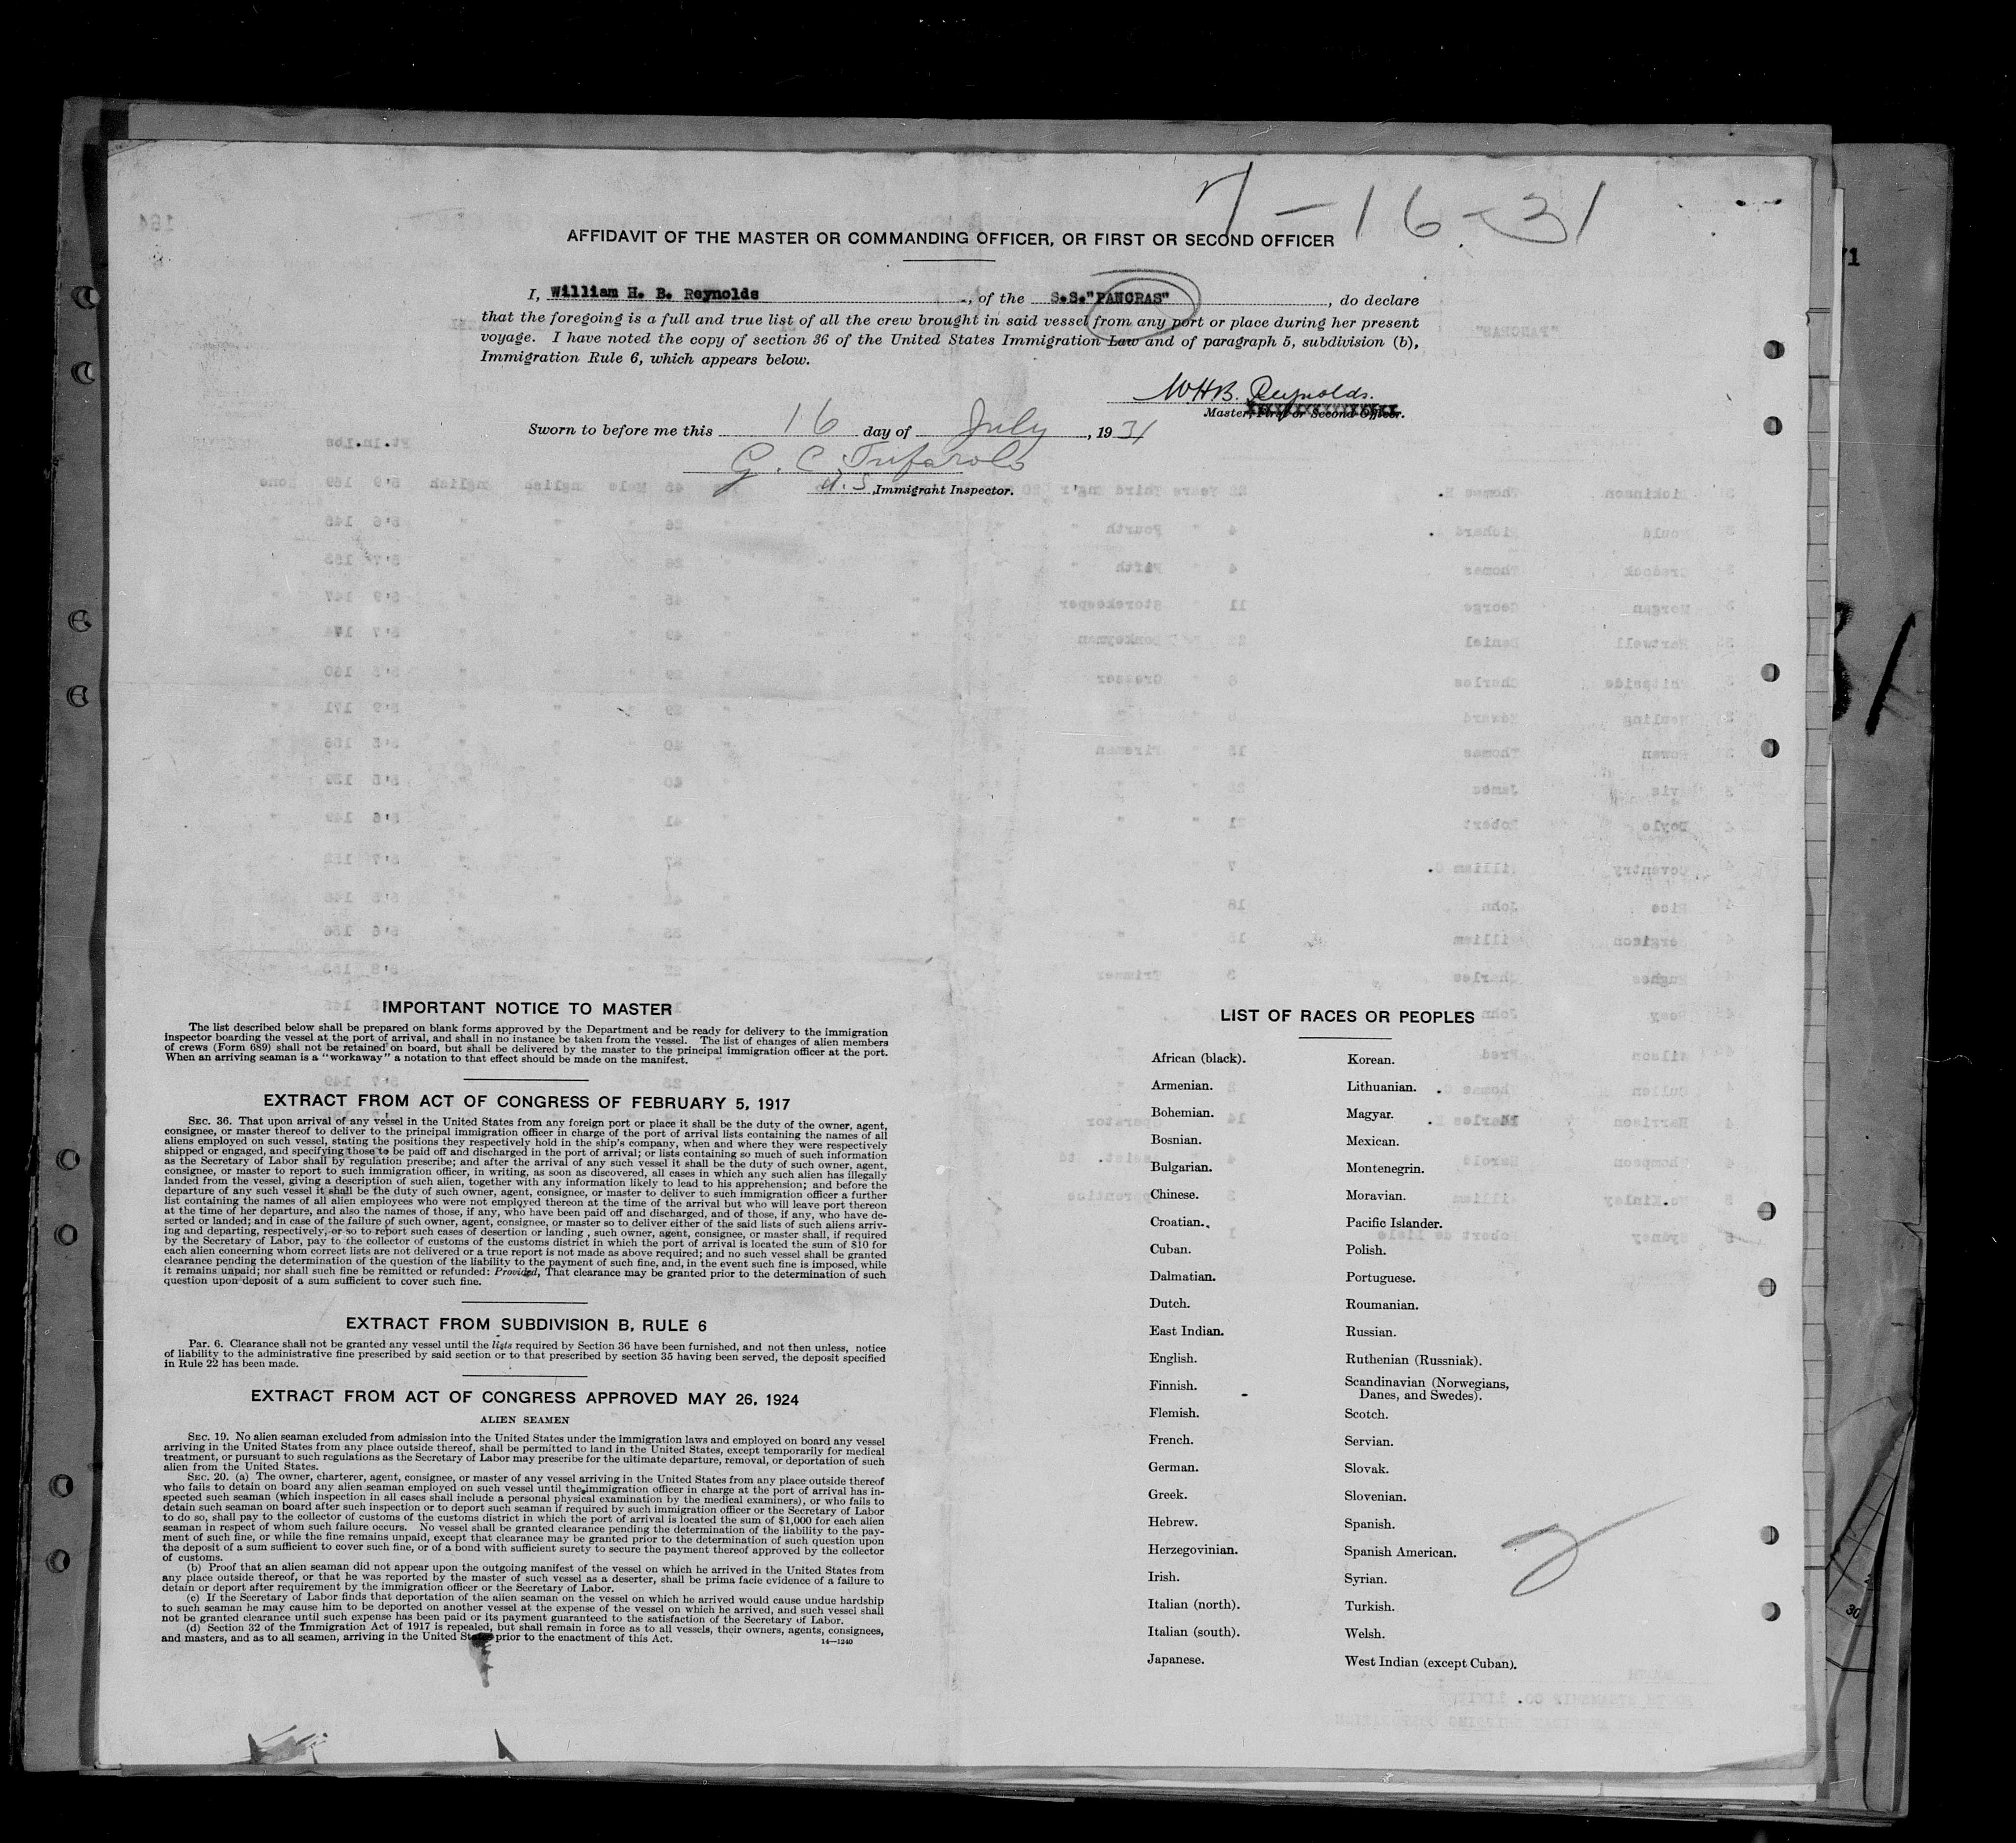 7-16-31
AFFIDAVIT OF THE MASTER OR COMMANDING OFFICER, OR FIRST OR SECOND OFFICER
I, William H. B. Reynolds, of the S.S."PANCRAS", do declare
that the foregoing is a full and true list of all the crew brought in said vessel from any port or place during her present
voyage. I have noted the copy of section 36 of the United States Immigration Law and of paragraph 5, subdivision (b),
Immigration Rule 6, which appears below.
WHB. Reynolds.
Master, First or Second Officer.
Sworn to before me this 16 day of July, 1931
G. C.
U.S. Immigrant Inspector.
IMPORTANT NOTICE TO MASTER
The list described below shall be prepared on blank forms approved by the Department and be ready for delivery to the immigration
inspector boarding the vessel at the port of arrival, and shall in no instance be taken from the vessel. The list of changes of alien members
of crews (Form 689) shall not be retained on board, but shall be delivered by the master to the principal immigration officer at the port.
When an arriving seaman is a "workaway" a notation to that effect should be made on the manifest.
EXTRACT FROM ACT OF CONGRESS OF FEBRUARY 5, 1917
SEC. 36. That upon arrival of any vessel in the United States from any foreign port or place it shall be the duty of the owner, agent,
consignee, or master thereof to deliver to the principal immigration officer in charge of the port of arrival lists containing the names of all
aliens employed on such vessel, stating the positions they respectively hold in the ship's company, when and where they were respectively
shipped or engaged, and specifying those to be paid off and discharged in the port of arrival; or lists containing so much of such information
as the Secretary of Labor shall by regulation prescribe; and after the arrival of any such vessel it shall be the duty of such owner, agent,
consignee, or master to report to such immigration officer, in writing, as soon as discovered, all cases in which any such alien has illegally
landed from the vessel, giving a description of such alien, together with any information likely to lead to his apprehension; and before the
departure of any such vessel it shall be the duty of such owner, agent, consignee, or master to deliver to such immigration officer a further
list containing the names of all alien employees who were not employed thereon at the time of the arrival but who will leave port thereon
at the time of her departure, and also the names of those, if any, who have been paid off and discharged, and of those, if any, who have de-
serted or landed; and in case of the failure of such owner, agent, consignee, or master so to deliver either of the said lists of such aliens arriv-
ing and departing, respectively, or so to report such cases of desertion or landing, such owner, agent, consignee, or master shall, if required
by the Secretary of Labor, pay to the collector of customs of the customs district in which the port of arrival is located the sum of $10 for
each alien concerning whom correct lists are not delivered or a true report is not made as above required; and no such vessel shall be granted
clearance pending the determination of the question of the liability to the payment of such fine, and, in the event such fine is imposed, while
it remains unpaid; nor shall such fine be remitted or refunded: Provided, That clearance may be granted prior to the determination of such
question upon deposit of a sum sufficient to cover such fine.
EXTRACT FROM SUBDIVISION B, RULE 6
Par. 6. Clearance shall not be granted any vessel until the lists required by Section 36 have been furnished, and not then unless, notice
of liability to the administrative fine prescribed by said section or to that prescribed by section 35 having been served, the deposit specified
in Rule 22 has been made.
EXTRACT FROM ACT OF CONGRESS APPROVED MAY 26, 1924
ALIEN SEAMEN
SEC. 19. No alien seaman excluded from admission into the United States under the immigration laws and employed on board any vessel
arriving in the United States from any place outside thereof, shall be permitted to land in the United States, except temporarily for medical
treatment, or pursuant to such regulations as the Secretary of Labor may prescribe for the ultimate departure, removal, or deportation of such
alien from the United States.
SEC. 20. (a) The owner, charterer, agent, consignee, or master of any vessel arriving in the United States from any place outside thereof
who fails to detain on board any alien seaman employed on such vessel until the immigration officer in charge at the port of arrival has in-
spected such seaman (which inspection in all cases shall include a personal physical examination by the medical examiners), or who fails to
detain such seaman on board after such inspection or to deport such seaman if required by such immigration officer or the Secretary of Labor
to do so, shall pay to the collector of customs of the customs district in which the port of arrival is located the sum of $1,000 for each alien
seaman in respect of whom such failure occurs. No vessel shall be granted clearance pending the determination of the liability to the pay-
ment of such fine, or while the fine remains unpaid, except that clearance may be granted prior to the determination of such question upon
the deposit of a sum sufficient to cover such fine, or of a bond with sufficient surety to secure the payment thereof approved by the collector
of customs.
(b) Proof that an alien seaman did not appear upon the outgoing manifest of the vessel on which he arrived in the United States from
any place outside thereof, or that he was reported by the master of such vessel as a deserter, shall be prima facie evidence of a failure to
detain or deport after requirement by the immigration officer or the Secretary of Labor.
(c) If the Secretary of Labor finds that deportation of the alien seaman on the vessel on which he arrived would cause undue hardship
to such seaman he may cause him to be deported on another vessel at the expense of the vessel on which he arrived, and such vessel shall
not be granted clearance until such expense has been paid or its payment guaranteed to the satisfaction of the Secretary of Labor.
(d) Section 32 of the Immigration Act of 1917 is repealed, but shall remain in force as to all vessels, their owners, agents, consignees,
and masters, and as to all seamen, arriving in the United States prior to the enactment of this Act.
14—1240
LIST OF RACES OR PEOPLES
African (black).
Armenian.
Bohemian.
Bosnian.
Bulgarian.
Chinese.
Croatian.
Cuban.
Dalmatian.
Dutch.
East Indian.
English.
Finnish.
Flemish.
French.
German.
Greek.
Hebrew.
Herzegovinian.
Irish.
Italian (north).
Italian (south).
Japanese.
Korean.
Lithuanian.
Magyar.
Mexican.
Montenegrin.
Moravian.
Pacific Islander.
Polish.
Portuguese.
Roumanian.
Russian.
Ruthenian (Russniak).
Scandinavian (Norwegians,
Danes, and Swedes).
Scotch.
Servian.
Slovak.
Slovenian.
Spanish.
Spanish American.
Syrian.
Turkish.
Welsh.
West Indian (except Cuban).